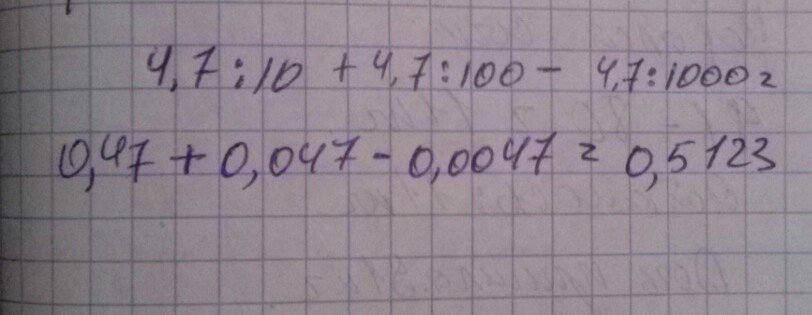 4,7:10 + 4,7:100 - 4,7:1000 =
0,47 + 0,047 - 0,0047 = 0,5123